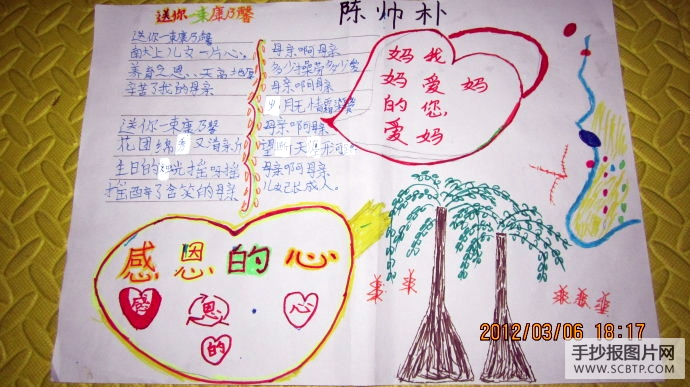 送你一束康乃馨
陈帅朴
送你一束康乃馨
献上儿女一片心。
养育之恩、天高地厚
辛苦了我的母亲
送你一束康乃馨
花团绵秀又清新
生日的烛光摇呀摇
摇醉了含笑的母亲
母亲啊母亲
多少操劳多少爱
母亲啊母亲
月无情霜染
母亲啊母亲
望断天涯形可
母亲啊母亲
儿女已长成人。
妈 我
妈 爱 妈
的 您
爱 妈
感恩的心
感 恩 心
的
2012/03/06 18:17
手抄报图片网
WWW.SCBTP.COM